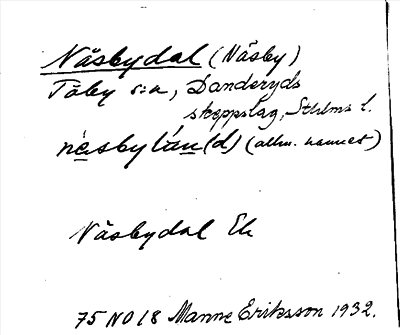 Näsbydal (Näsby)
Täby s:n, Danderyds
skeppslag, Sthlms l.
nèsbylán(d) (allm. namnet)
Näsbydal Ek
75 NO 18 Manne Eriksson 1932.